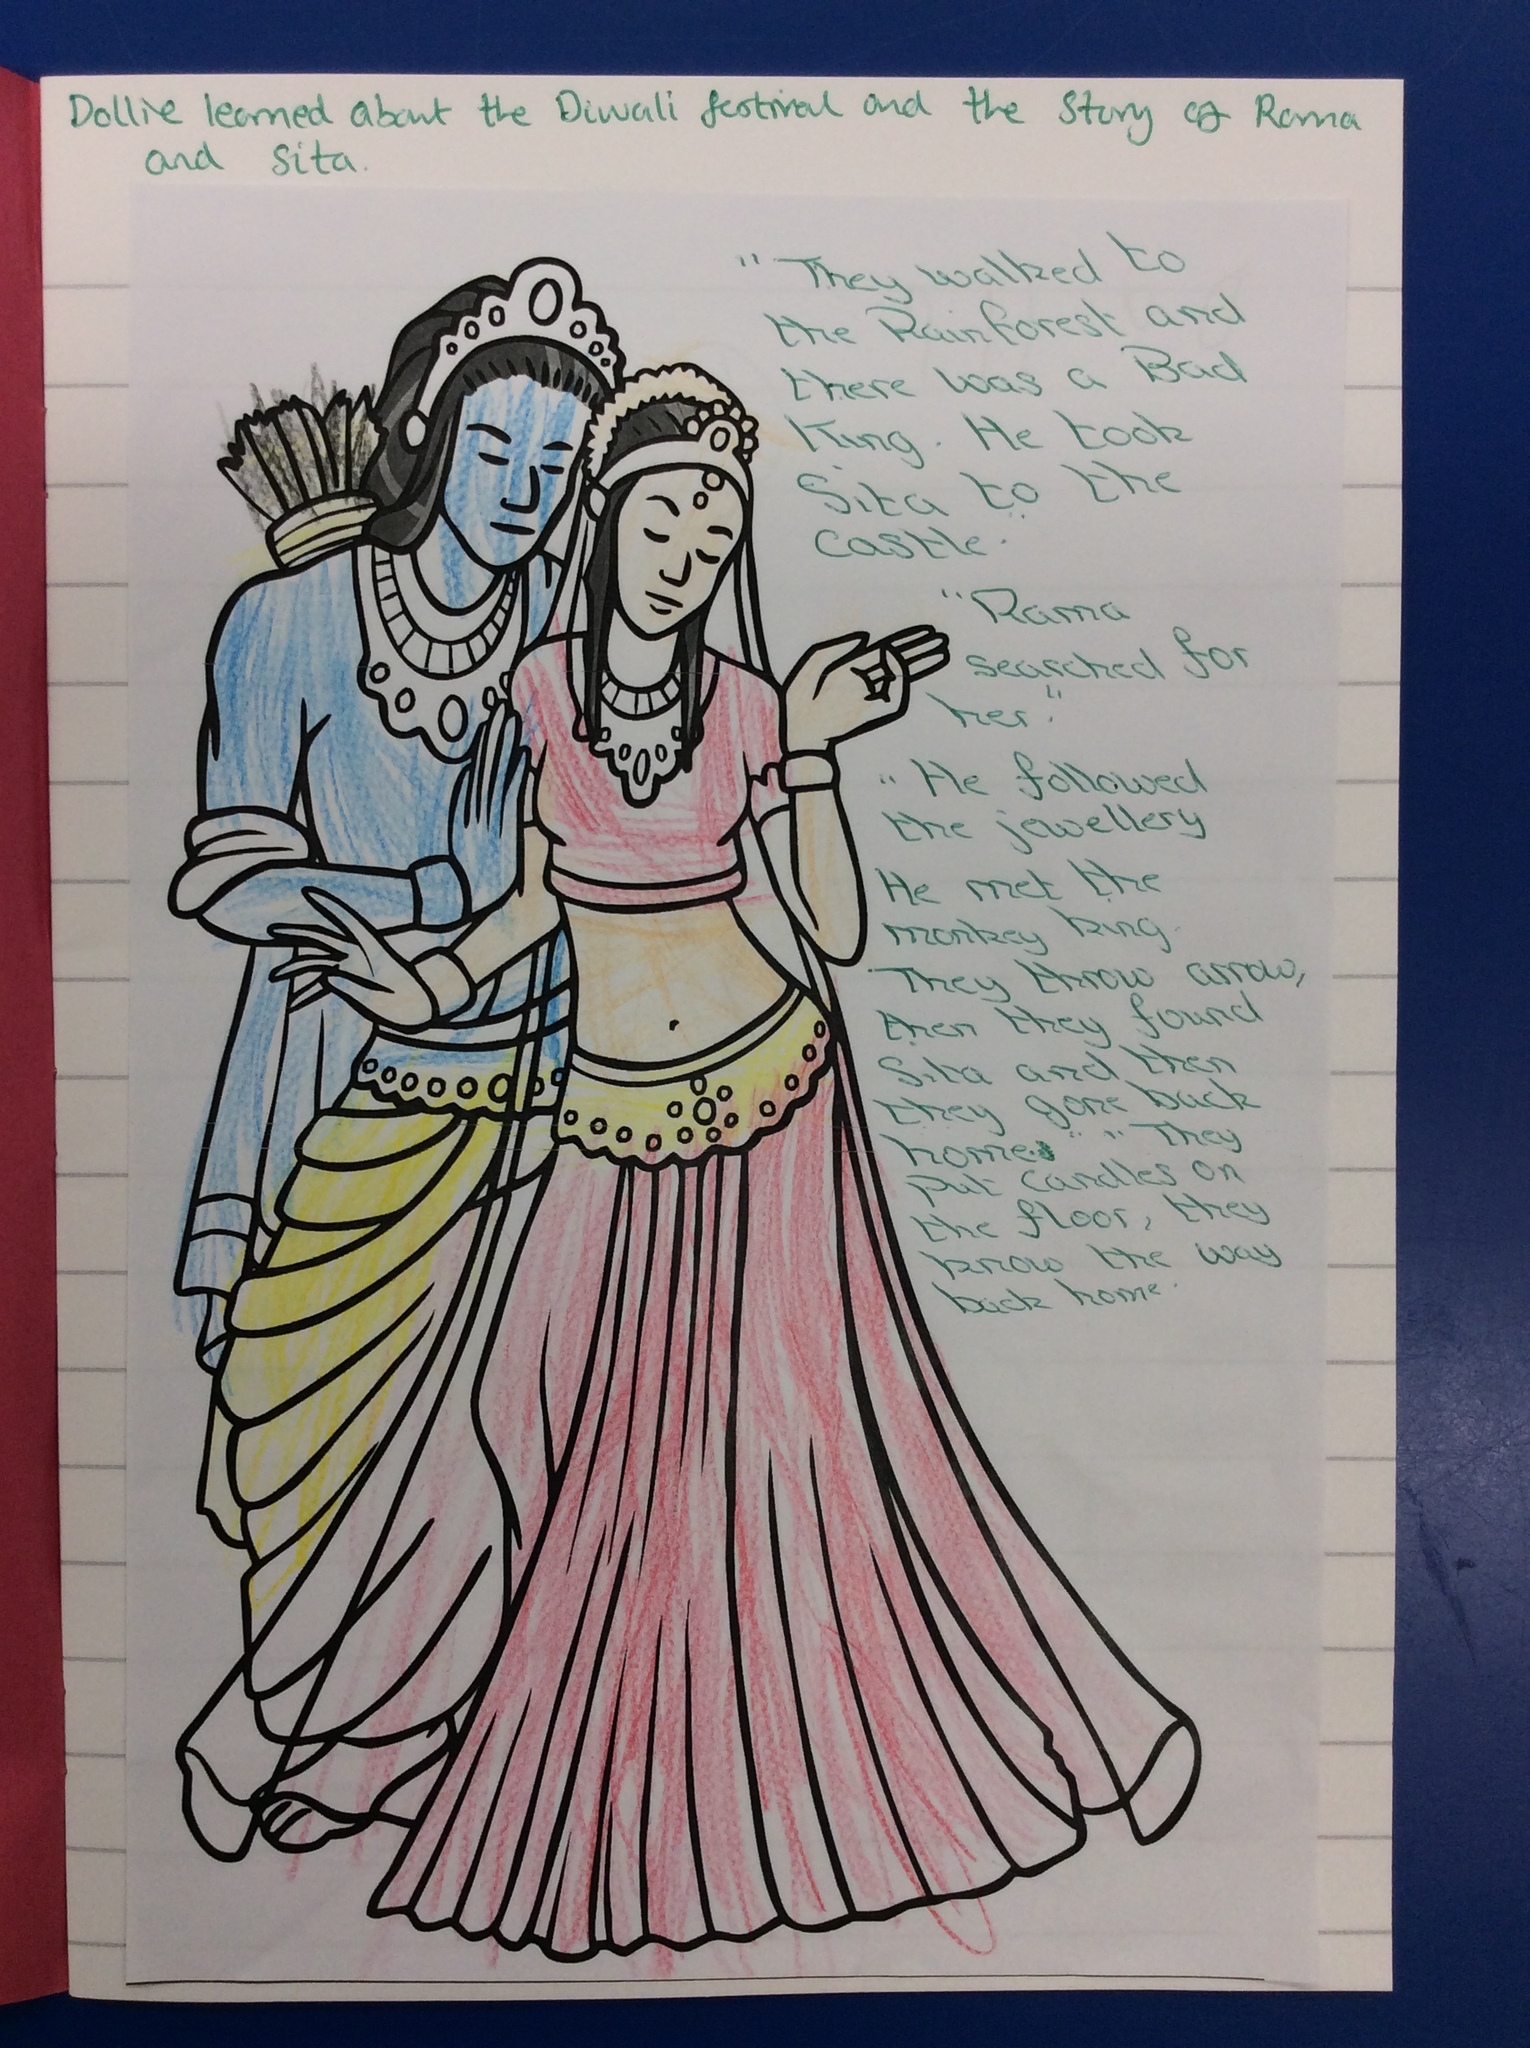 Dollie learned about the Diwali festival and the story of Rama
and Sita.
"They walked to
the Rainforest and
there was a Bad
King. He took
Sita to the
castle.
"Rama
searched for
her."
"He followed
the jewellery
He met the
monkey king.
They throw arrow,
then they found
Sita and then
they gone back
home." "They
put candles on
the floor, they
know the way
back home.